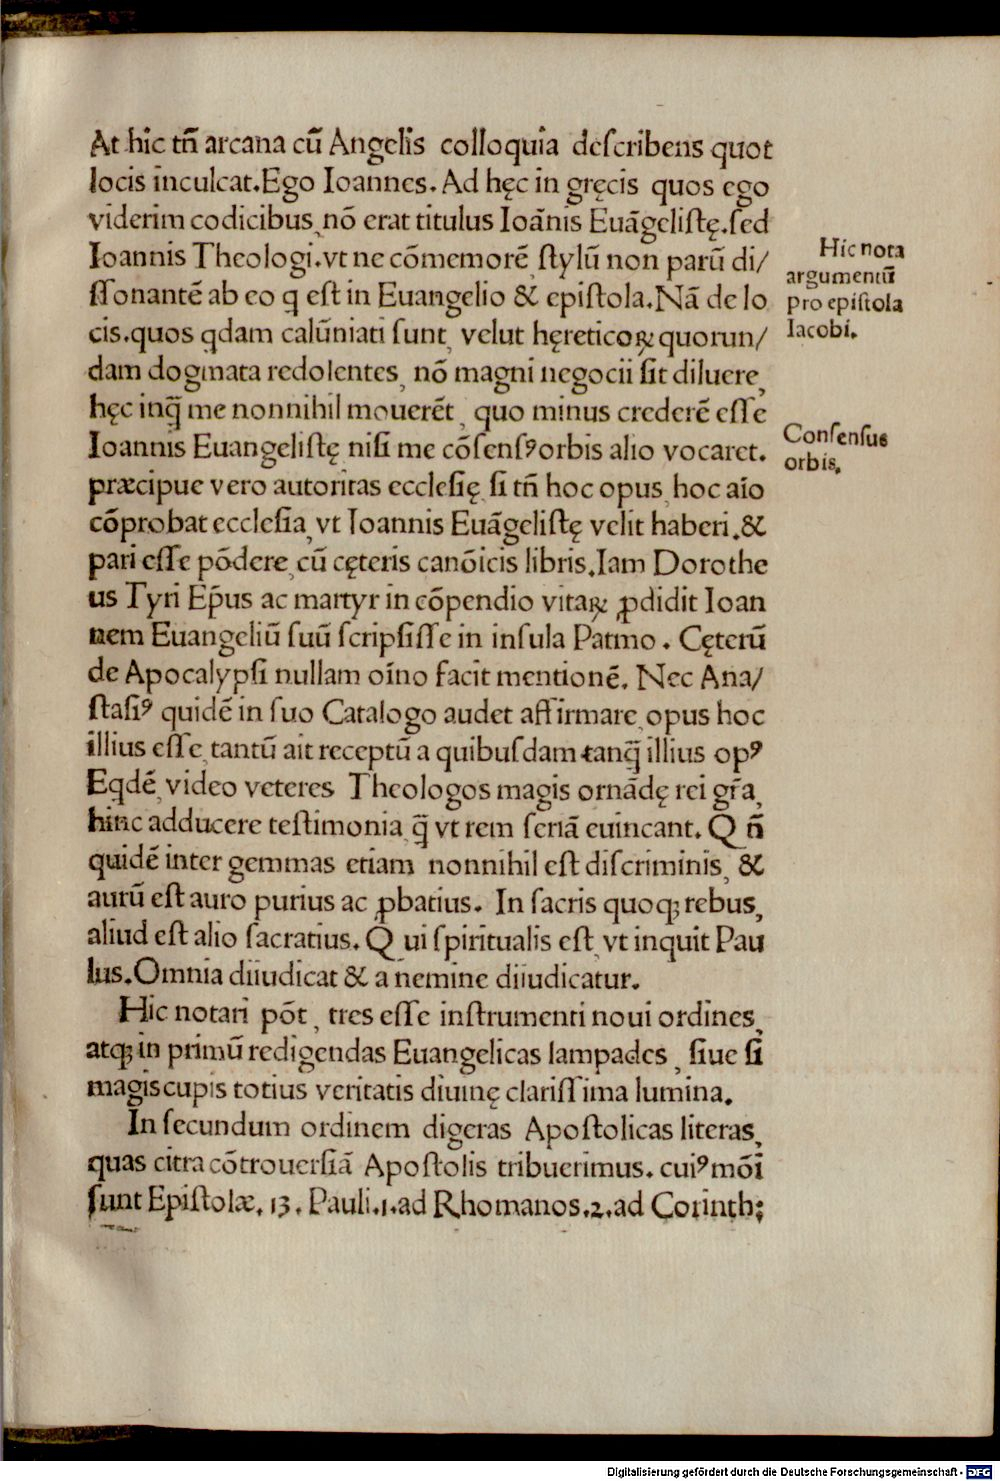 At hic tñ arcana cũ Angelis colloquia deſcribens quot
locis inculcat.Ego Ioannes. Ad hęc in gręcis quos ego
viderim codicibus, nõ erat titulus Ioãnis Euãgeliſtę.ſed
Ioannis Theologi.vt ne cõmemorẽ ſtylũ non parũ di/
ſſonantẽ ab eo q̱ eſt in Euangelio & epiſtola.Nã de lo
cis.quos q̱dam calũniati ſunt, velut hęreticoꝝ quorun/
dam dogmata redolentes, nõ magni negocii ſit diluere,
hęc inq̃ me nonnihil mouerẽt, quo minus crederẽ eſſe
Ioannis Euangeliſtę niſi me cõſenſꝰorbis alio vocaret.
præcipue vero autoritas eccleſię, ſi tñ hoc opus, hoc aĩo
cõprobat eccleſia, vt Ioannis Euãgeliſtę velit haberi.&
pari eſſe põdere, cũ cęteris canõicis libris.Iam Dorothe
us Tyri Ep̃us ac martyr in cõpendio vitaꝝ ꝓdidit Ioan
nem Euangeliũ ſuũ ſcripſiſſe in inſula Patmo. Cęterũ
de Apocalypſi nullam oĩno facit mentionẽ. Nec Ana/
ſtaſiꝰ quidẽ in ſuo Catalogo audet affirmare, opus hoc
illius eſſe, tantũ ait receptũ a quibuſdam tanq̃ illius opꝰ
Eqdẽ, video veteres Theologos magis ornãdę rei gr̃a,
hinc adducere teſtimonia, q̃ vt rem ſeriã euincant. Q ñ
quidẽ inter gemmas etiam nonnihil eſt diſcriminis, &
aurũ eſt auro purius ac ꝓbatius. In ſacris quoqꝫ rebus,
aliud eſt alio ſacratius. Q ui ſpiritualis eſt, vt inquit Pau
lus.Omnia diiudicat & a nemine diiudicatur.
Hic notari põt, tres eſſe inſtrumenti noui ordines,
atqꝫ in primũ redigendas Euangelicas lampades, ſiue ſi
magis cupis totius veritatis diuinę clariſſima lumina.
In ſecundum ordinem digeras Apoſtolicas literas,
quas citra cõtrouerſiã Apoſtolis tribuerimus. cuiꝰmõi
ſunt Epiſtolæ. 13. Pauli.1.ad Rhomanos.2.ad Corinth:
Hic nota
argumentũ
pro epiſtola
Iacobi.
Conſenſus
orbis.
Digitalisierung gefördert durch die Deutsche Forschungsgemeinschaft - DFG